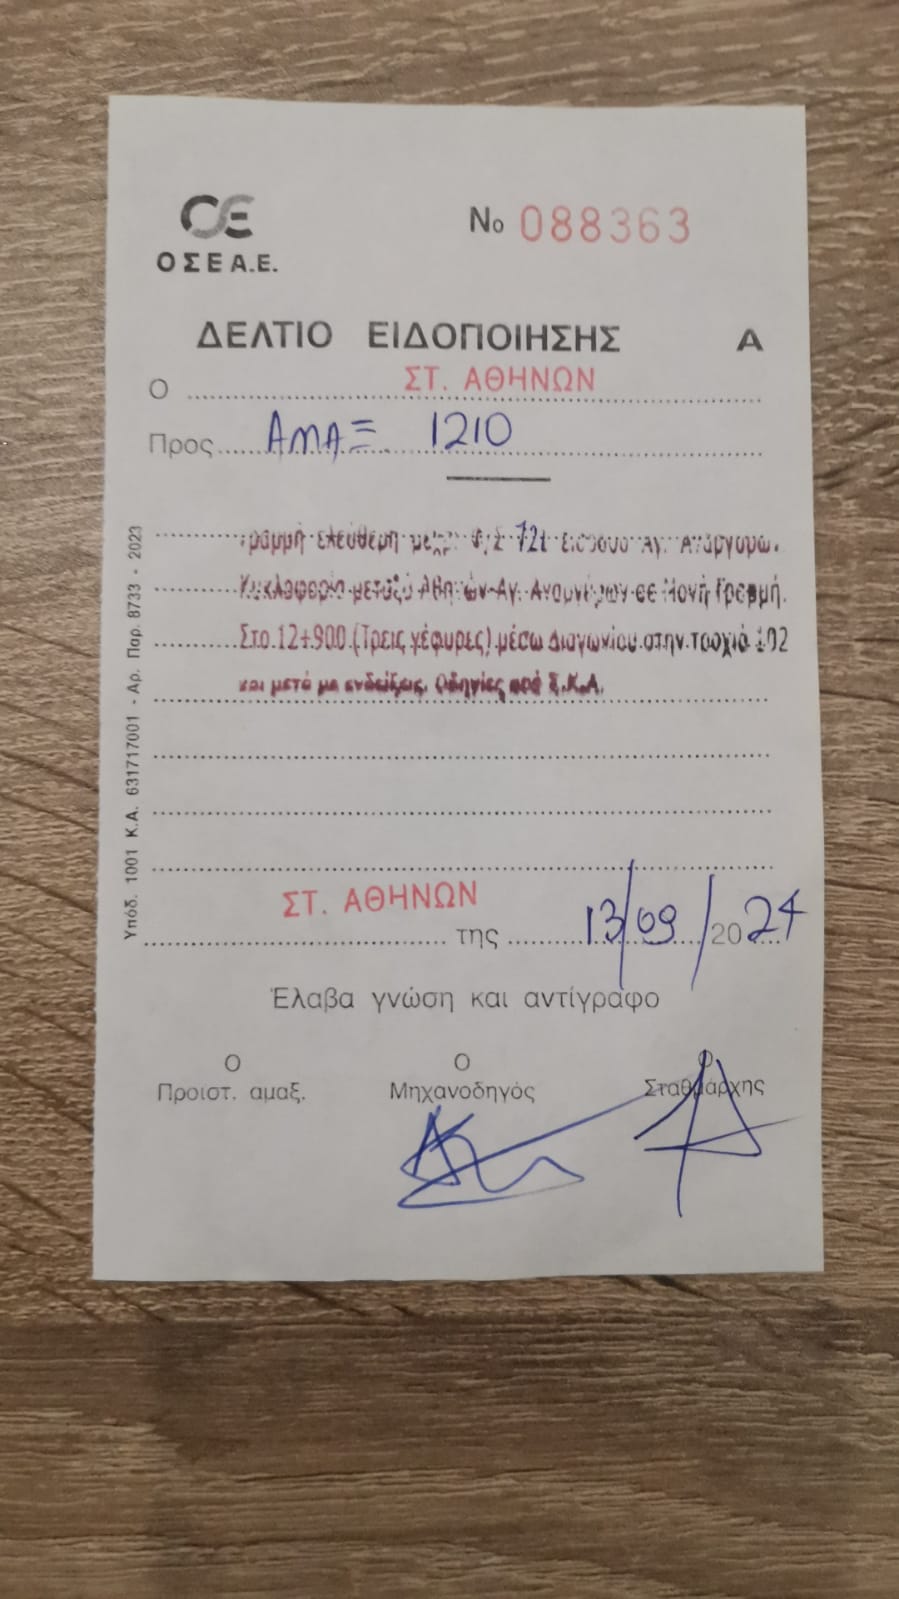 ΟΣΕ Α.Ε.
Νο 088363
ΔΕΛΤΙΟ ΕΙΔΟΠΟΙΗΣΗΣ Α
Ο ΣΤ. ΑΘΗΝΩΝ
Προς ΑΜΑΞ 1210
Γραμμή ελεύθερη Φ/Σ εισόδου Αγ. Αναργύρων.
Κυκλοφορία μεταξύ Αθηνών-Αγ. Αναργύρων σε Μονή Γραμμή.
Στο 12+900 (Τρεις γέφυρες) μέσω Διαγωνίου στην τροχιά 102
και μετά με ενδείξεις. Οδηγίες από Σ.Κ.Α.
ΣΤ. ΑΘΗΝΩΝ της 13/09/2024
Έλαβα γνώση και αντίγραφο
Ο Ο Ο
Προιστ. αμαξ. Μηχανοδηγός Σταθμάρχης
Υπόδ. 1001 Κ.Α. 631717001 - Αρ. Παρ. 8733 - 2023